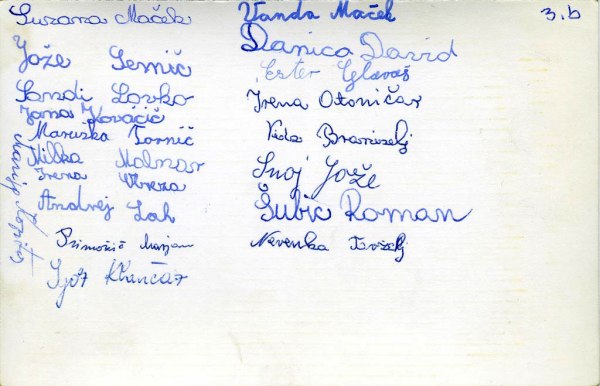 Suzana Maček
Jože Semič
Sandi Lovko
Jana Kovačič
Maruška Tornič
Milka Molnar
Irena
Andrej Lah
Primožič Marjan
Igor Klančar
Marija Kopitar
Vanda Maček
Danica David
Ester Glavaš
Irena Otoničar
Vida Braniselj
Snoj Jože
Šubic Roman
Nevenka
3.b